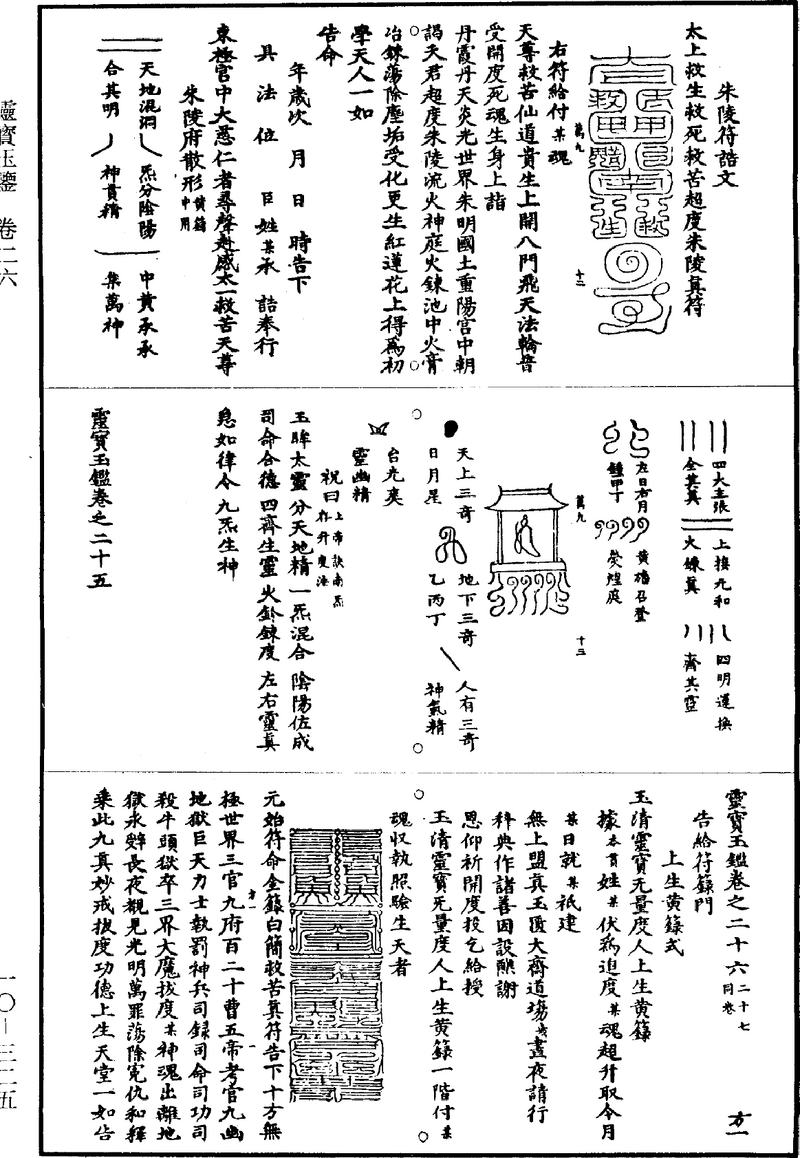 朱陵符誥文
太上救生救死救苦超度朱陵真符
右符給付某魂
天尊救苦仙道貴生上開八門飛天法輪普
受開度死魂生身上詣
丹霞丹天炎光世界朱明國土重陽宮中朝
謁天君超度朱陵流火神庭火鍊池中火膏
冶鍊蕩除塵垢受化更生紅蓮花上得為初
學天人一如
告命
年歲次 月 日 時告下
具法位 臣姓某承 誥奉行
東極宮中大慈仁者尋聲赴感太一救苦天尊
朱陵府散形黃籙中用
天地混洞 炁分陰陽 中黃承承
合其明 神貫精 集萬神
四大主張 上接九和 四明運換
全其真 火鍊真 齊其靈
左日右月 黃幡召登
鍾甲丁 熒煌庭
萬九
十二
萬九
十三
天上三奇 地下三奇 人有三奇
日月星 乙丙丁 神氣精
台光奕
靈幽精
祝曰
玉眸太靈 分天地精 一炁混合 陰陽佐成
司命合德 四齊生靈 火鈴鍊度 左右靈真
急如律令 九炁生神
靈寶玉鑑卷之二十五
靈寶玉鑑卷之二十六二十七同卷 方一
告給符籙門
上生黃籙式
玉清靈寶无量度人上生黃籙
據本貫姓某伏為追度某魂超升取今月
某日就某祇建
無上盟真玉匱大齋道場幾晝夜請行
科典作諸善因設醮謝
恩仰祈開度按乞給授
玉清靈寶无量度人上生黃籙一階付某
魂收執照驗生天者
元始符命金籙白簡救苦真符告下十方無
極世界三官九府百二十曹五帝考官九幽
地獄巨天力士執罰神兵司錄司命司功司
殺牛頭獄卒三界大魔拔度某神魂出離地
獄永辭長夜覩見光明萬罪蕩除冤仇和釋
乘此九真妙戒拔度功德上生天堂一如告
靈寶玉鑒 卷二六
一〇—三二五